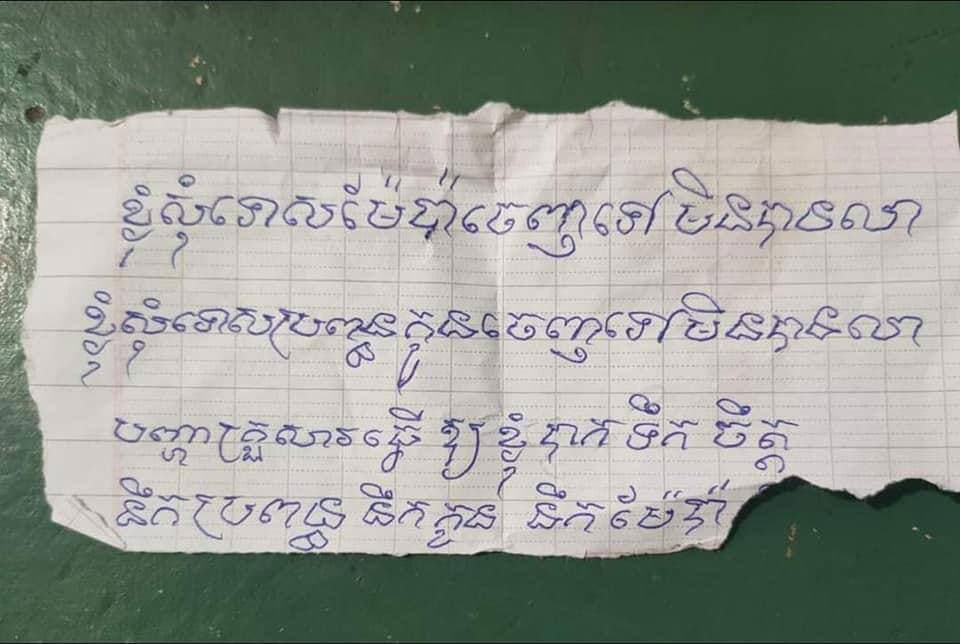 ខ្ញុំសុំទោសម៉ែប៉ាចេញទៅមិនបានលា
ខ្ញុំសុំទោសប្រពន្ធកូនចេញទៅមិនបានលា
បញ្ហាគ្រួសារធ្វើឲ្យខ្ញុំបាក់ទឹកចិត្ត
នឹកប្រពន្ធ នឹកកូន នឹកម៉ែប៉ា